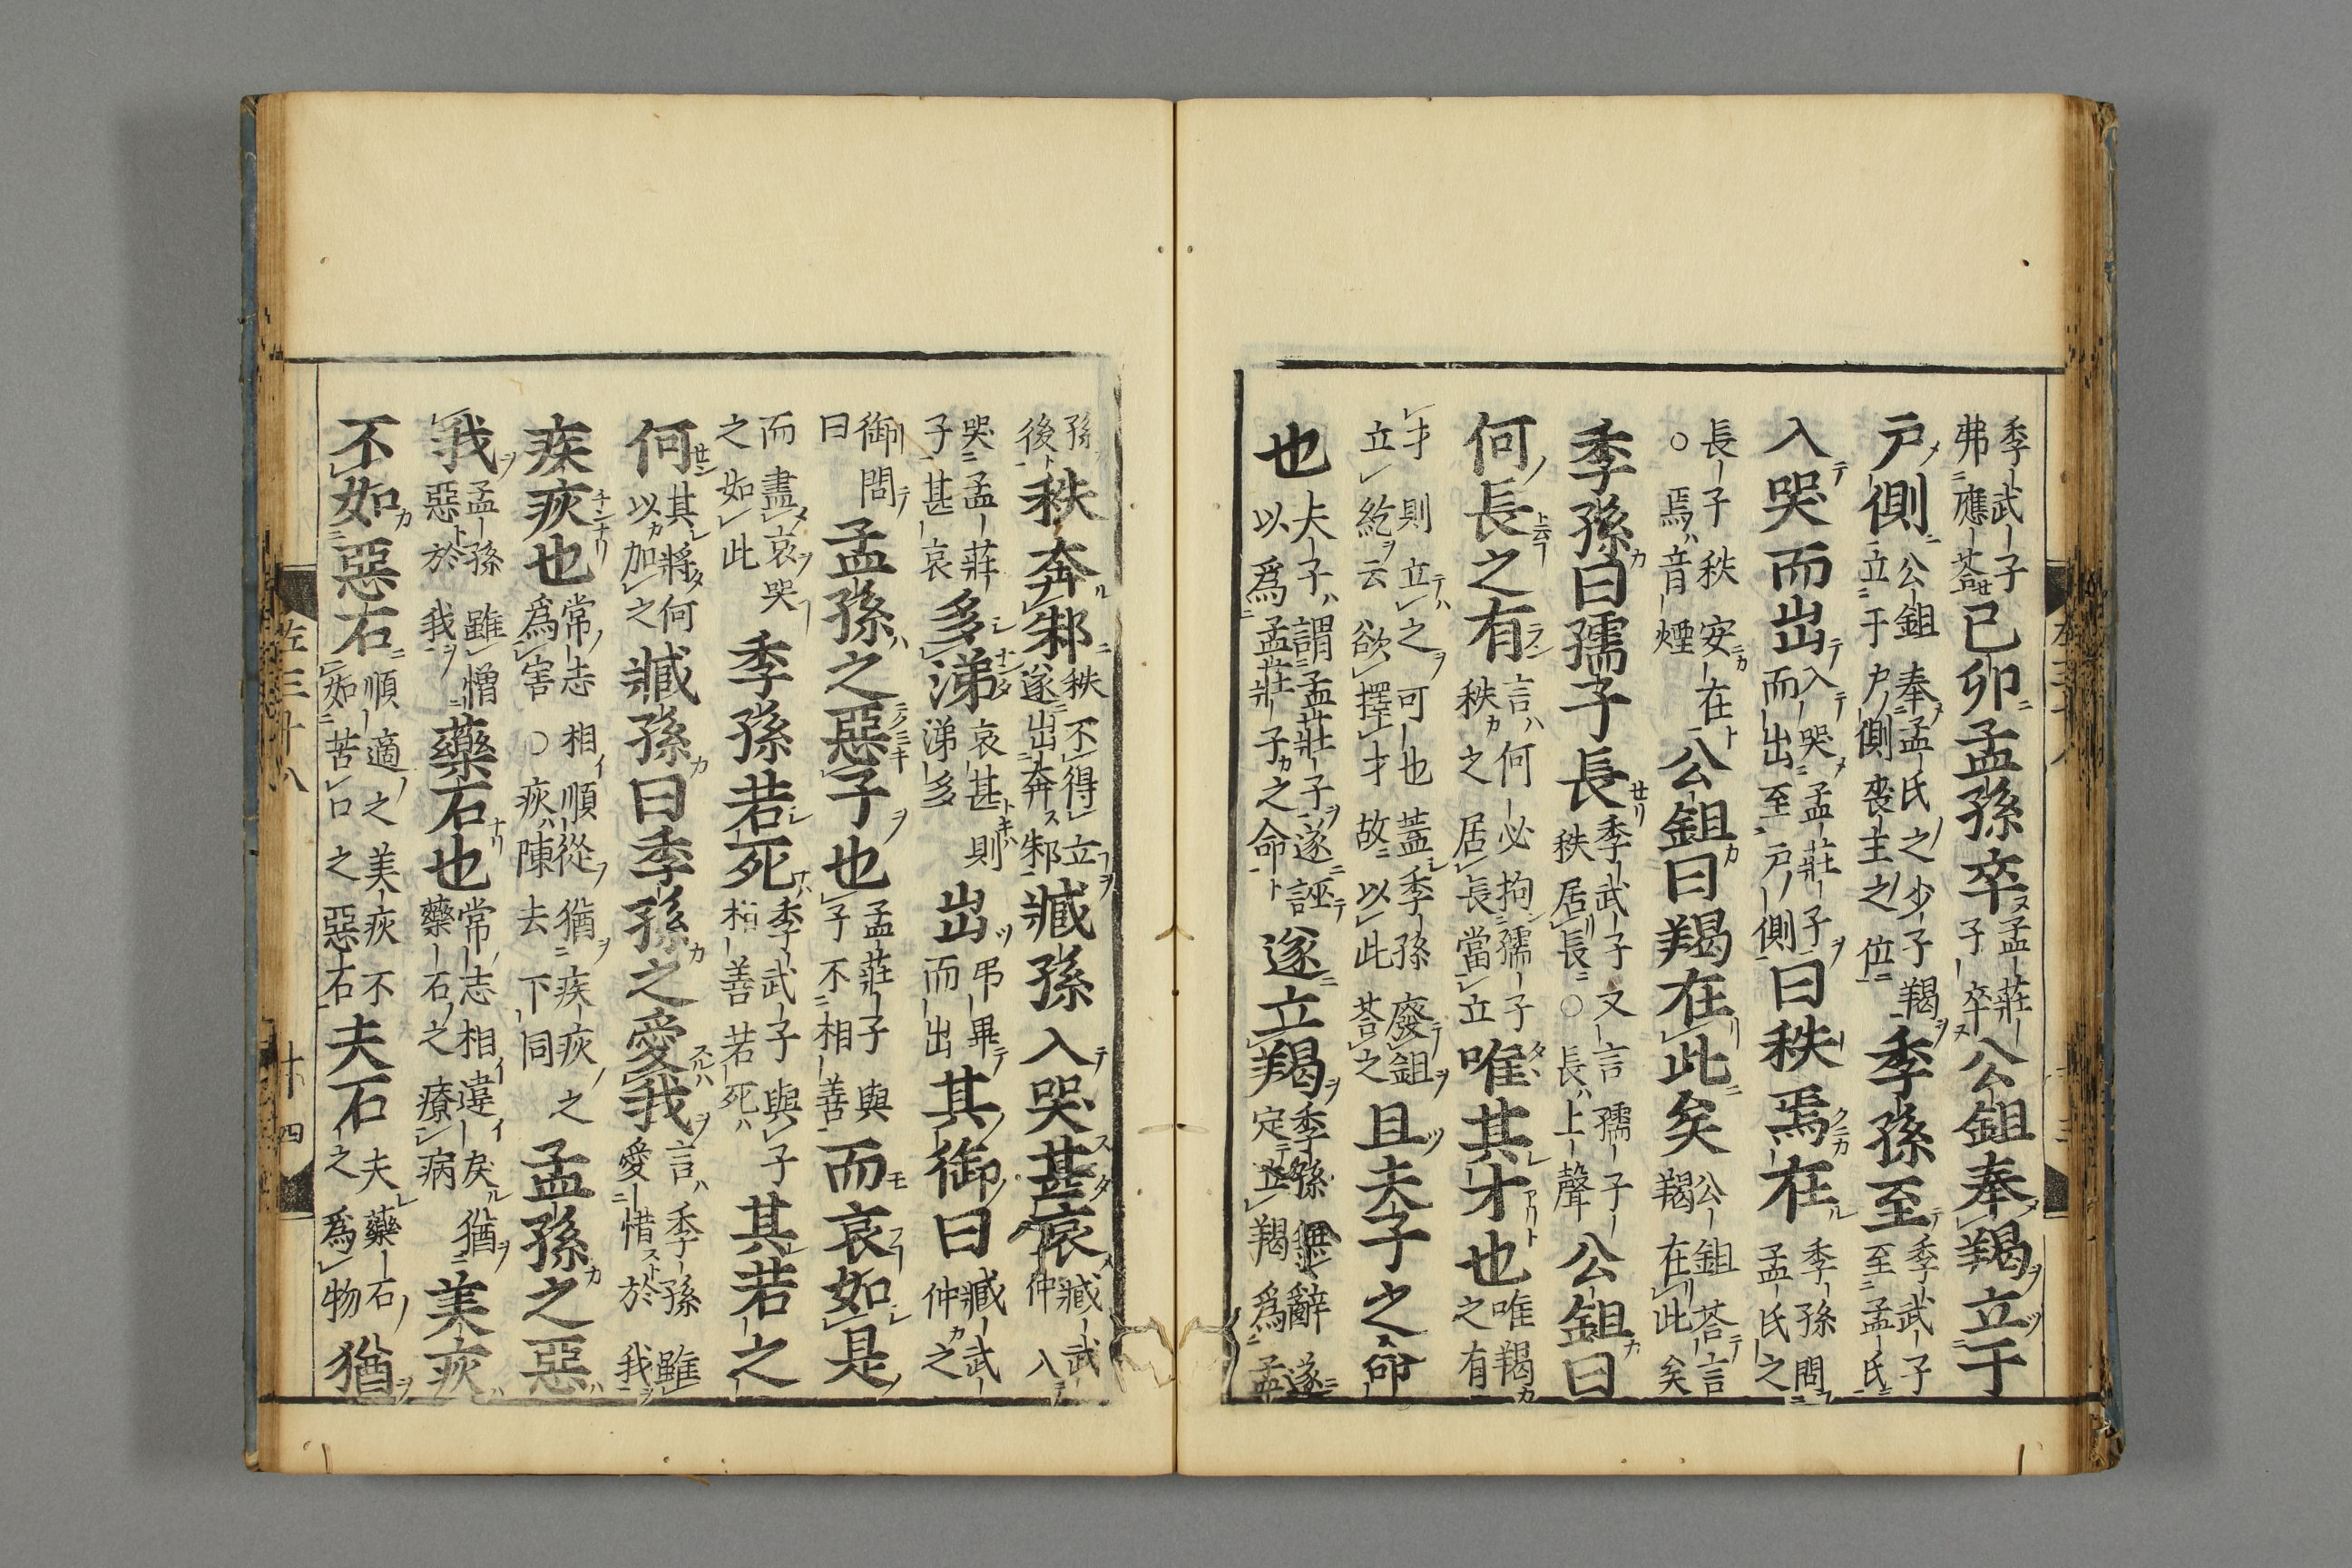 季武子弗應荅己卯孟孫卒孟莊子卒公鉏奉羯立于
戶側公鉏奉孟氏之少子羯立于戶側喪主之位季孫至季武子至孟氏
入哭而出入哭孟莊子而出至戶側曰秩焉在季孫問孟氏之
長子秩安在○焉音煙公鉏曰羯在此矣公鉏荅言羯在此矣
季孫曰孺子長季武子又言孺子秩居長○長上聲公鉏曰
何長之有言何必拘孺子秩之居長當立唯其才也唯羯之有
才則立之可也蓋季孫廢鉏立紇云欲擇才故以此荅之且夫子之命
也夫子謂孟莊子遂誣以爲孟莊子之命遂立羯季孫無辭遂定立羯爲孟
孫後秩奔邾秩不得立遂出奔邾臧孫入哭甚哀臧武仲入
哭孟莊子甚哀多涕哀甚則涕多出弔畢而出其御曰臧武仲之
御問曰孟孫之惡子也孟莊子與子不相善而哀如是
而盡哀哭之如此季孫若死季武子與子相善若死其若之
何其將何以加之臧孫曰季孫之愛我言季孫雖愛惜於我
疾疢也常志相順從猶疾疢之爲害○疢陳去下同孟孫之惡
我孟孫雖憎惡於我藥石也常志相違戾猶藥石之療病美疢
不如惡石順適之美疢不如苦口之惡石夫石夫藥石之爲物猶
左三十八
十四